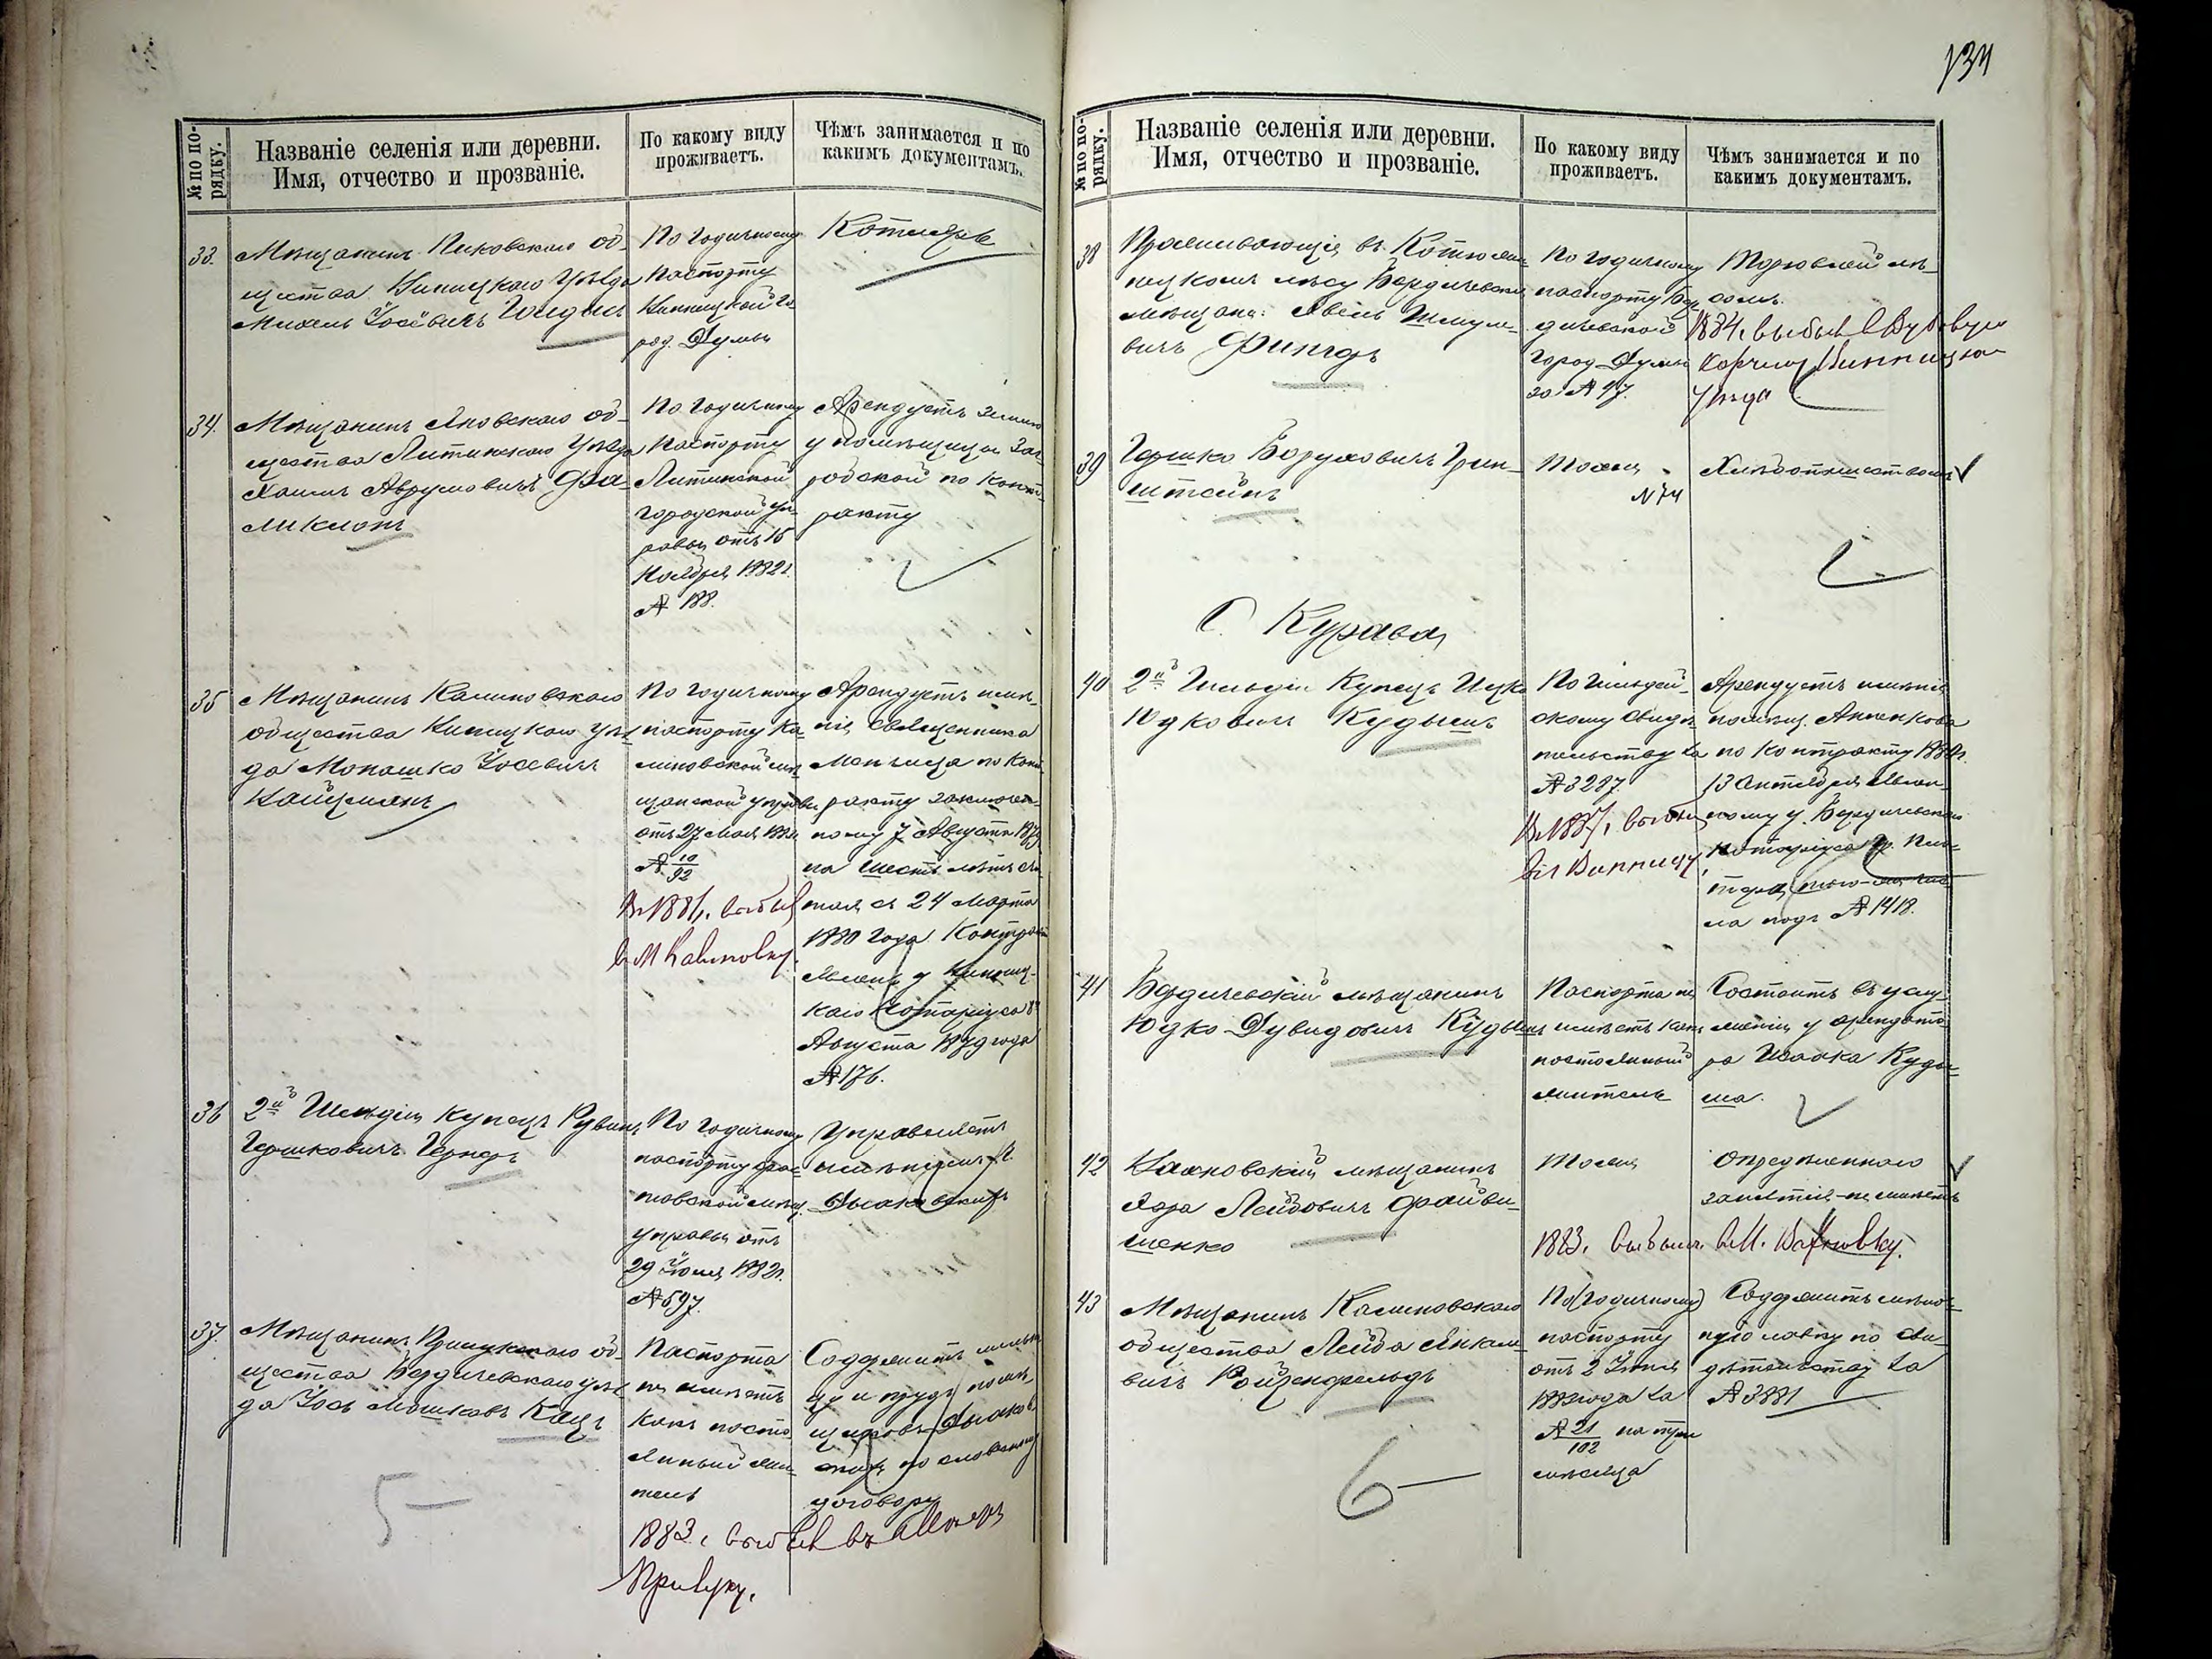 134
№ по по-
рядку.
Названіе селенія или деревни.
Имя, отчество и прозваніе.
По какому виду
проживаетъ.
Чѣмъ занимается и по
какимъ документамъ.
33.
Мѣщанинъ Пиковскаго об-
щества Винницкаго Уѣзда
Михель Іосевичъ
По годичному
паспорту
Винницкой Го-
род. Думы
34.
Мѣщанинъ Яновскаго об-
щества Литинскаго Уѣзда
Хаимъ Аврумовичъ
По годичному
паспорту
Литинской
городской уп-
равы отъ 15
Ноября 1882 г.
№ 188.
Арендуетъ землю
у помѣщицы
по конт-
ракту
35
Мѣщанинъ Калиновскаго
общества Виницкаго уѣз-
да Монашко Іосевичъ
Вайцманъ
По годичному
паспорту Ка-
линовской мѣ-
щанской управы
отъ 27 мая
№ 10/92
В 1886 г. выбыл
в М Калиновку.
Арендуетъ имѣ-
ніе священника
по конт-
ракту заключен-
ному 7 Августа 1879
на шесть лѣтъ счи-
тая съ 24 марта
1880 года Контрактъ
явленъ у Винниц-
каго Нотаріуса 8
Августа 1879 года
№ 176.
36
2й Гильдіи купецъ Рувинъ
Гершковичъ Гернеръ
По годичному
паспорту
мѣщ.
управы отъ
29 Іюля 1882 г.
№ 597.
Управляетъ
имѣніемъ
37.
Мѣщанинъ Прилукскаго об-
щества Бердичевскаго уѣз-
да Іось Мошковъ Кацъ
Паспорта
не имѣетъ
какъ посто-
янный жи-
тель
1883 г. выбыл въ
Прилуку.
Содержитъ мельни-
цу и прудъ помѣ-
щиковъ
по словесному
договору
5 —
№ по по-
рядку.
Названіе селенія или деревни.
Имя, отчество и прозваніе.
По какому виду
проживаетъ.
Чѣмъ занимается и по
какимъ документамъ.
38
Проживающіе въ Котюжин-
ецкомъ лѣсу Бердичевскій
мѣщан: Шмуле-
вичъ
По годичному
паспорту Бер-
дичевской
Город. Думы
за № 97.
Торговлей лѣ-
сомъ.
1884 г. выбыл в
корчму Винницкаго
Уѣзда
39
Гершко Боруховичъ Грин-
штейнъ
Тоже
№ 74
Хлѣбопашествомъ
С. Курава
40
2й Гильдіи Купецъ Ицко
Юдковичъ Кудышъ
По гильдей-
скому свидѣ-
тельству за
№ 3287.
В 1887 г. выбыл
в г. Винницу
Арендуетъ имѣніе
помѣщ. Анненкова
по контракту 188
13 Октября явлен-
ному у Бердичевскаго
Нотаріуса
того-же чис-
ла подъ № 1418.
41
Бердичевскій мѣщанинъ
Юдко Дувидовичъ Кудышъ
Паспорта не
имѣетъ какъ
постоянный
житель
Состоитъ въ услу-
женіи у арендато-
ра Ицака Куды-
ша.
42
Вахновскій мѣщанинъ
Лейбовичъ Файви-
шенко
Тоже
Опредѣленнаго
занятія не имѣетъ
1883 г. выбылъ в М. Вахновку.
43
Мѣщанинъ Калиновскаго
общества Лейба Янкеле-
вичъ Ройзенфельдъ
По (годичному)
паспорту
отъ 2 Іюня
1883 года за
№ 21/102 на три
мѣсяца
Содержитъ мѣлоч-
ную лавку по сви-
дѣтельству за
№ 3881
6 —